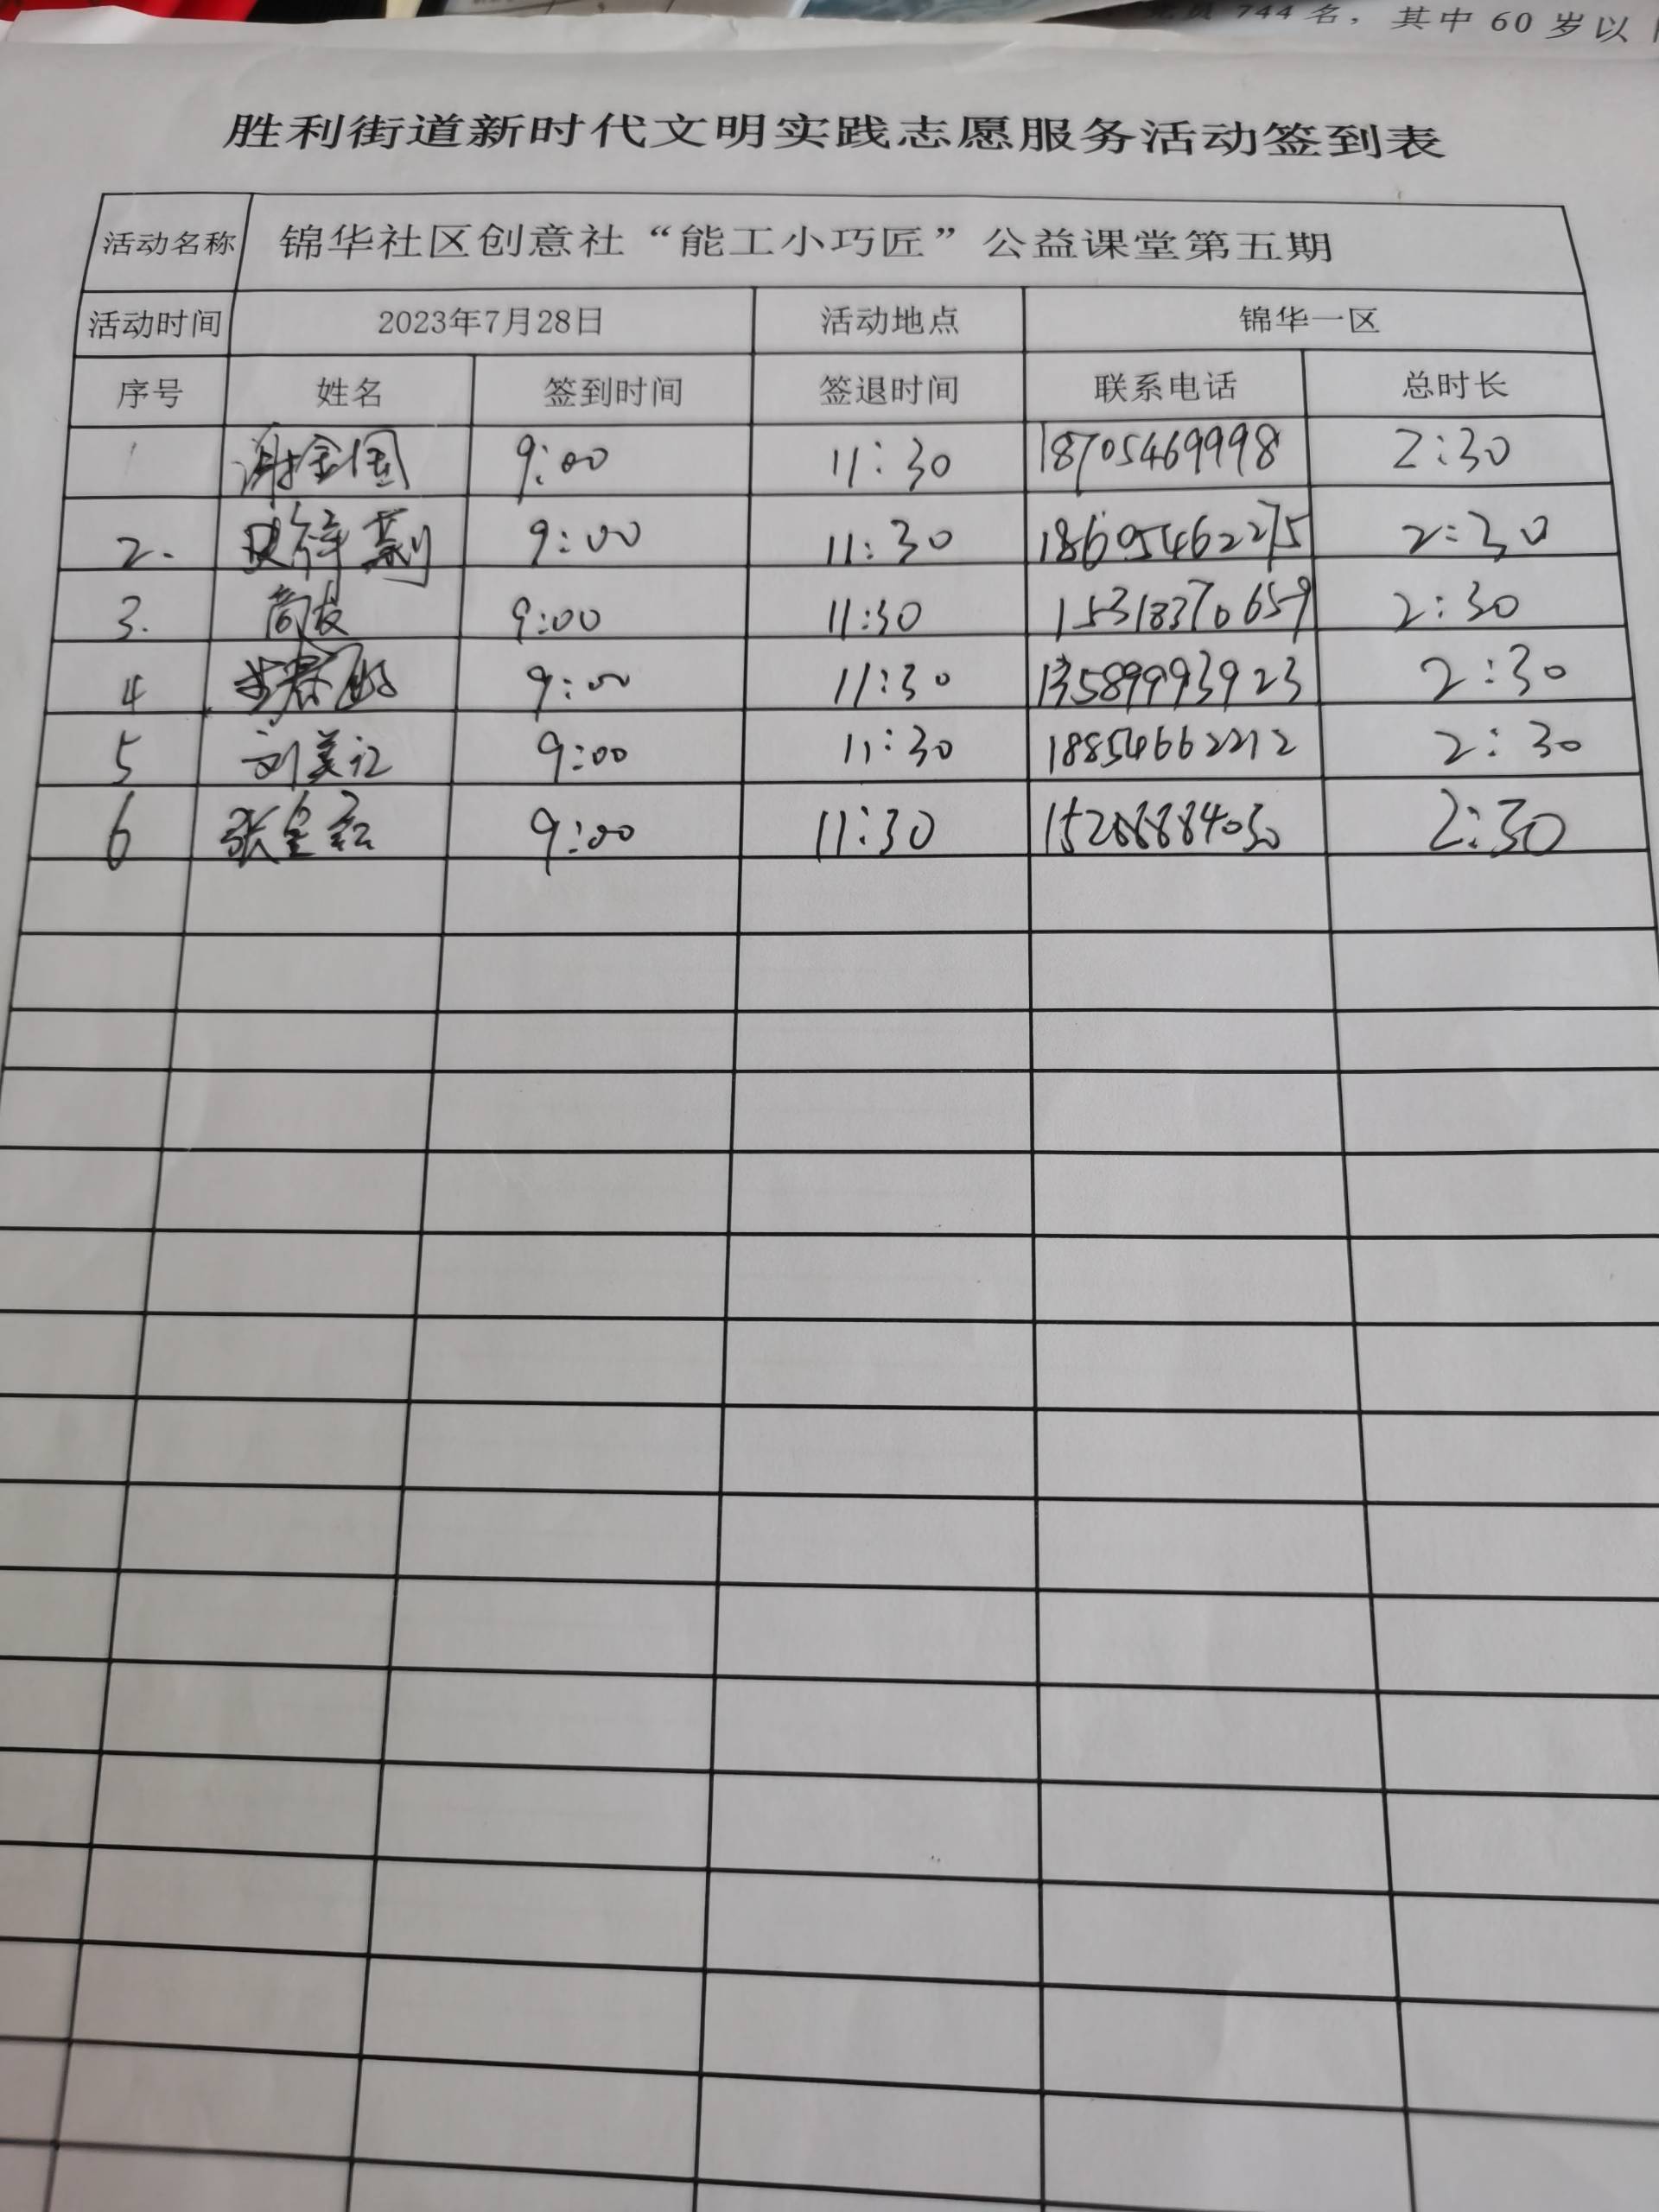 744 名，其中 60 岁以
胜利街道新时代文明实践志愿服务活动签到表
活动名称 锦华社区创意社“能工小巧匠”公益课堂第五期
活动时间 2023年7月28日 活动地点 锦华一区
序号 姓名 签到时间 签退时间 联系电话 总时长
1 谢金国 9:00 11:30 18705469998 2:30
2. 9:00 11:30 18605462275 2:30
3. 9:00 11:30 15318370659 2:30
4 9:00 11:30 13589993923 2:30
5 刘美记 9:00 11:30 18854662212 2:30
6 张 9:00 11:30 2:30